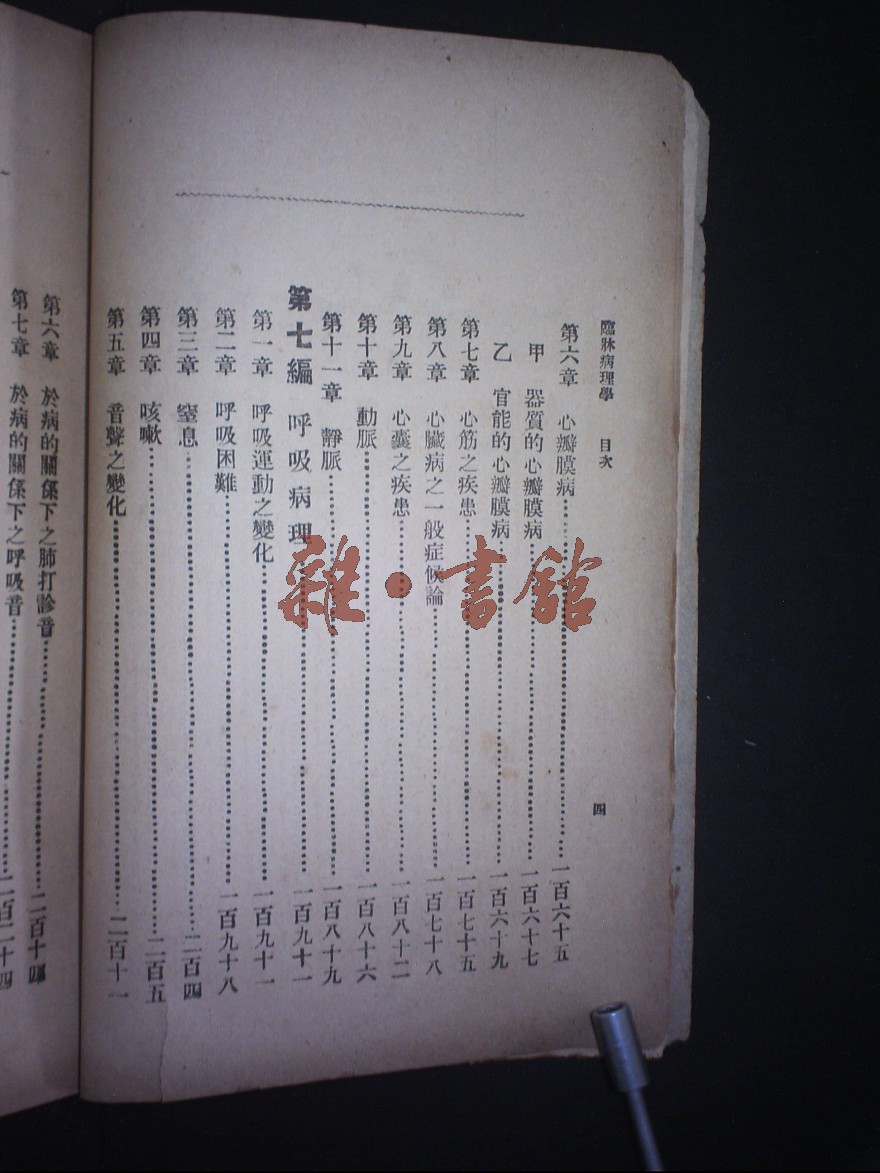 臨牀病理學 目次 四
第六章 心瓣膜病 一百六十五
甲 器質的心瓣膜病 一百六十七
乙 官能的心瓣膜病 一百六十九
第七章 心筋之疾患 一百七十五
第八章 心臟病之一般症候論 一百七十八
第九章 心囊之疾患 一百八十二
第十章 動脈 一百八十六
第十一章 靜脈 一百八十九
第七編 呼吸病理 一百九十一
第一章 呼吸運動之變化 一百九十一
第二章 呼吸困難 一百九十八
第三章 窒息 二百四
第四章 咳嗽 二百五
第五章 音聲之變化 二百十一
第六章 於病的關係下之肺打診音 二百十四
第七章 於病的關係下之呼吸音 二百二十四
雜·書館